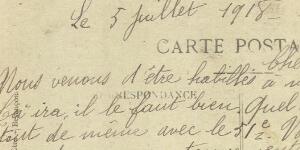 Le 5 Juillet 1918
CARTE POSTA
Nous venons d'être habillés à n
Ça ira, il le faut bien. Quel
RESPONDANCE
tout de même avec le 51e